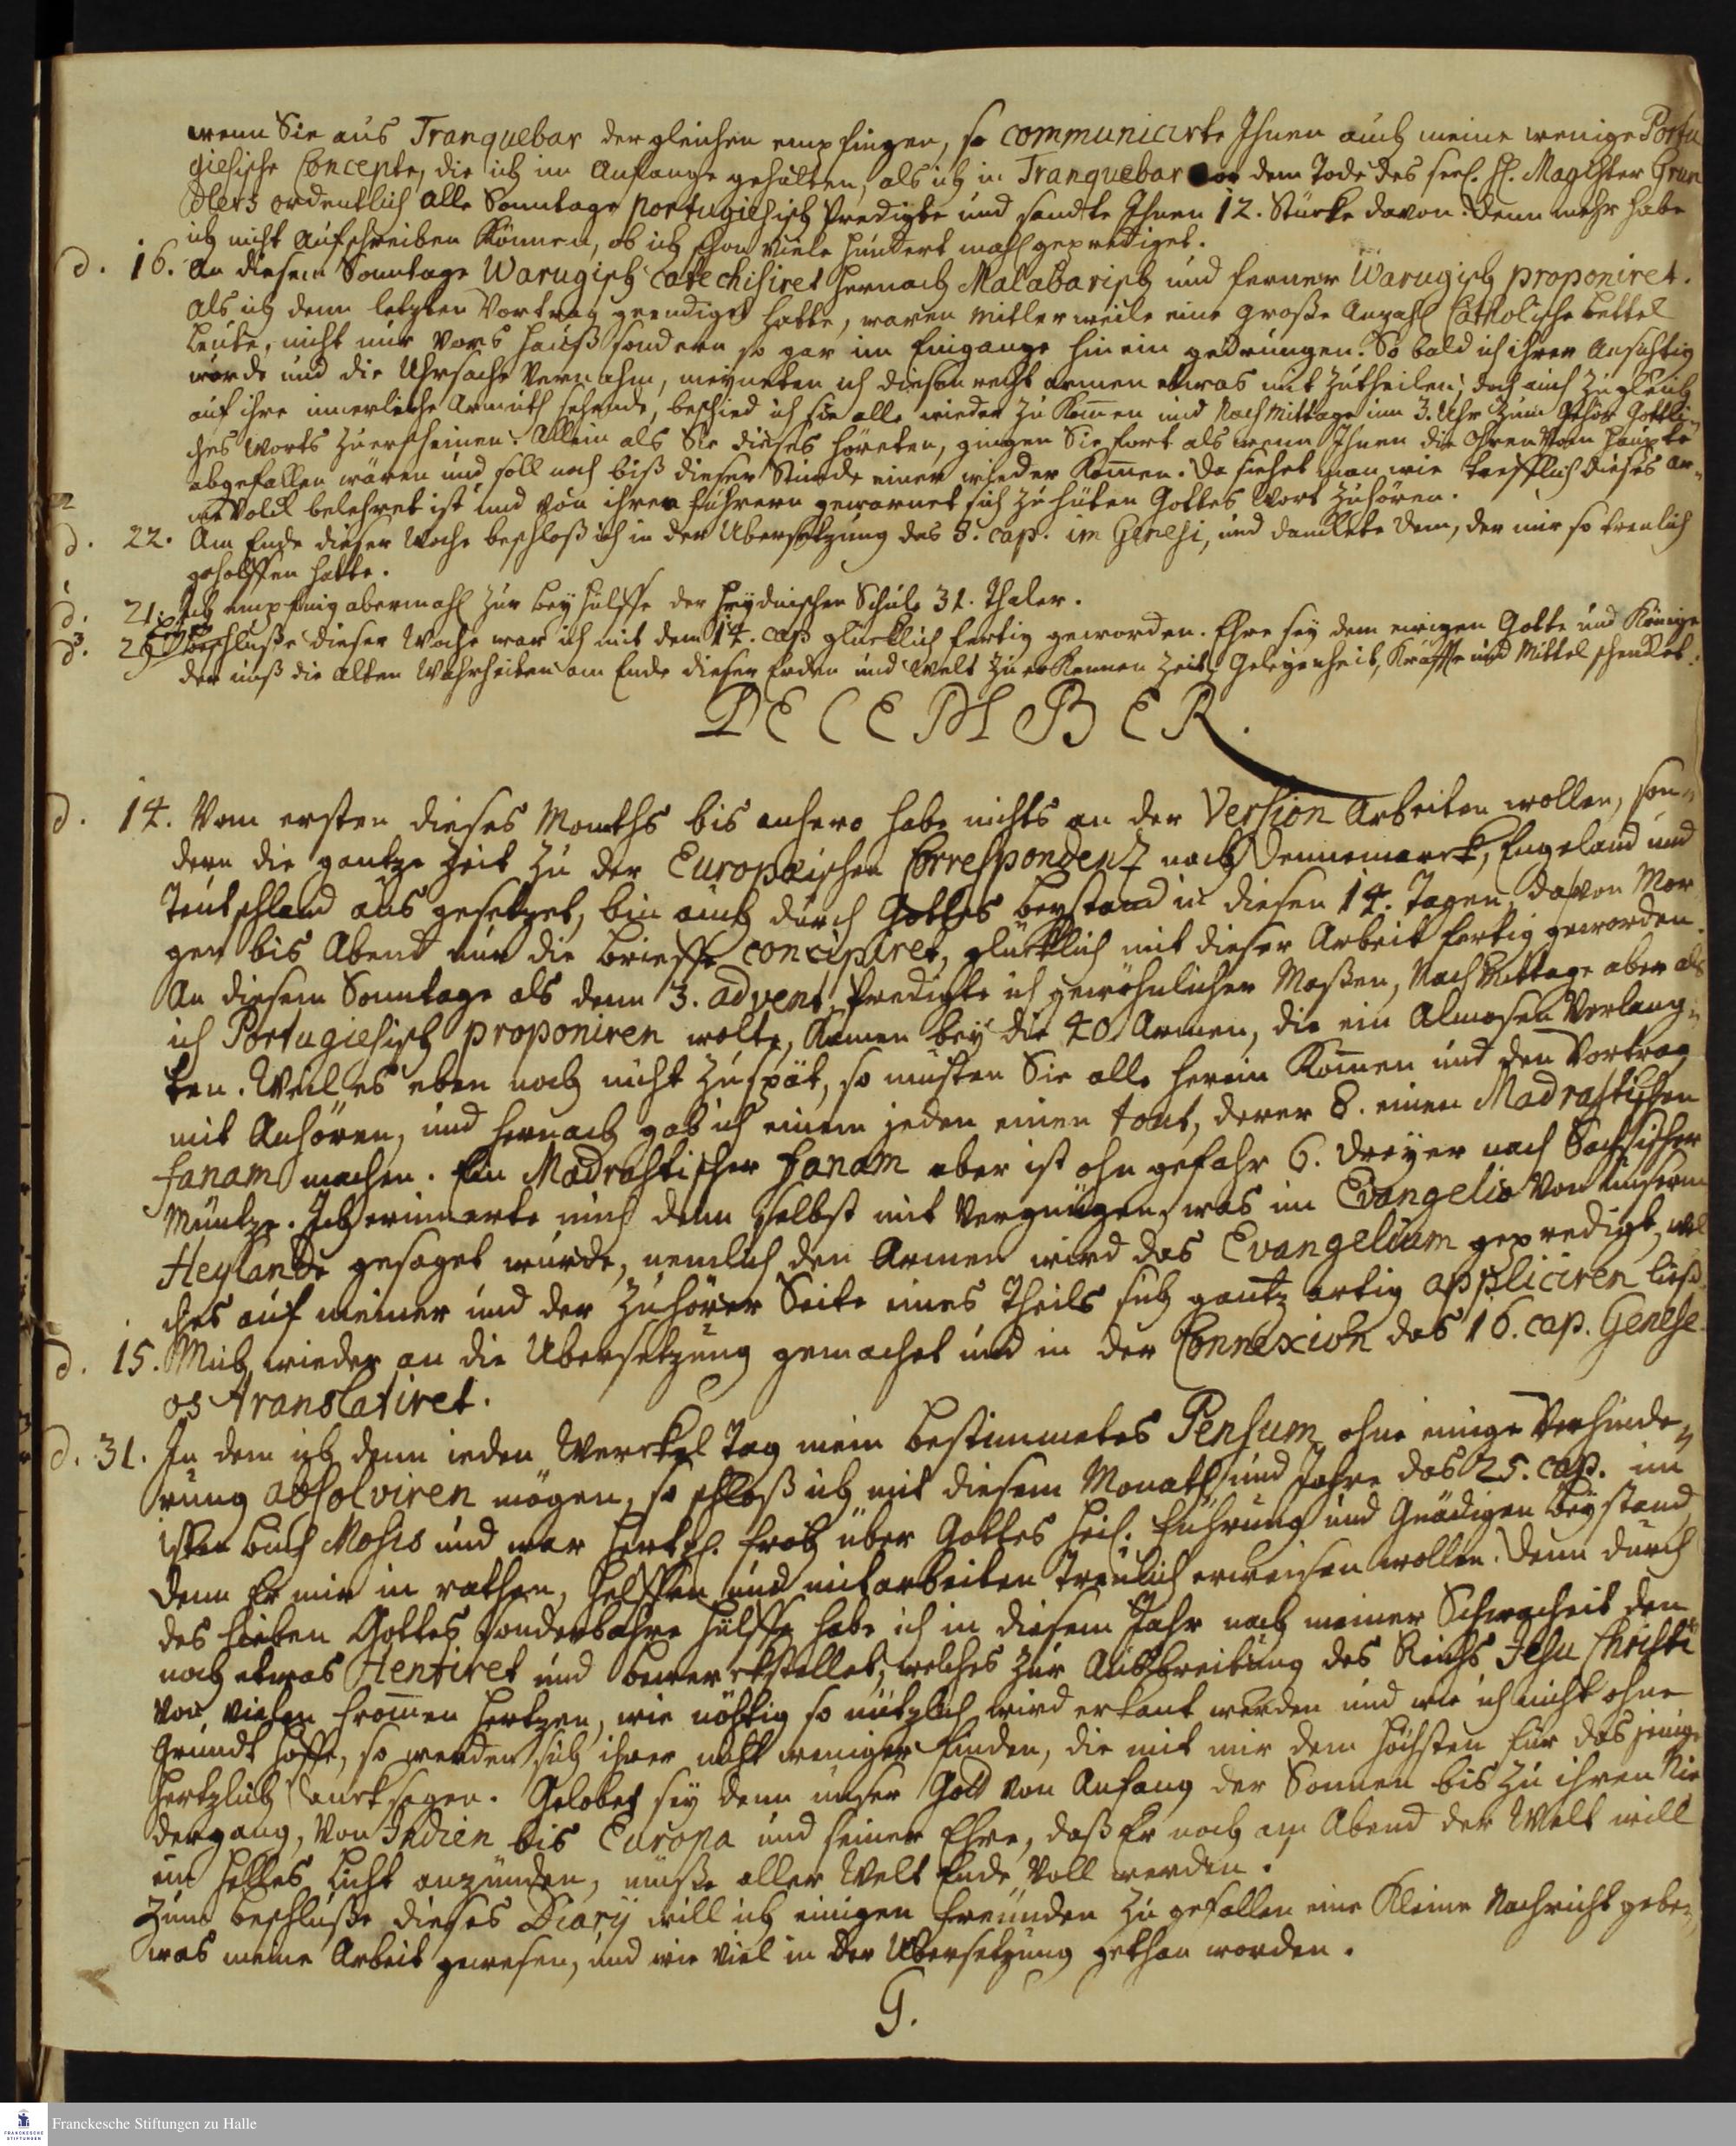 wenn Sie aus Tranquebar dergleichen empfingen, so communicirte Ihnen auch meine wenige Portu
giesische Concepte, die ich im Anfange gehalten, als ich in Tranquebar vor dem Tode des seel. H. Magister Grun
dlers ordentlich alle Sonntage Portugiesisch Predigte und sandte Ihnen 12. Stücke davon. denn mehr habe
ich nicht Aufschreiben Können, ob ich schon viele hundert mahl geprediget.
d. 16. An diesem Sonntage Warugisch catechisiret hernach Malabarisch und ferner Warugisch proponiret.
Als ich denn letzten Vortrag geendiget hatte, waren mitlerweile eine große Anzahl Catholische bettel
Leute, nicht nur vors hauß sondern so gar im Eingange hinein gedrungen. So bald ich ihrer Ansichtig
wurde und die Uhrsache Vernahm, meyneten ich diesen recht armen etwas mit zutheilen; doch auch zugleich
auf ihre innerliche Armuth sehende, beschied ich sie alle wieder zu Kom̃en und Nach Mittage um 3. Uhr zum Gehör Gottli-
ches Worts zu erscheinen. Allein als Sie dieses höreten, gingen Sie fort als wenn Ihnen die Ohren vom haupte
abgefallen wären und soll noch biß dieser Stunde einer wieder Kom̃en. da siehet man wie trefflich dieses ar-
me Volck belehret ist und von ihren führern gewarnet sich zu hüten Gottes Wort zuhören.
d. 22. Am Ende dieser Woche beschloß ich in der Ubersetzung das 8. cap. im Genesi, und danckete dem, der mir so treulich
geholffen hatte.
d. 21. Ich empfing abermahl zur beyhülffe der heydnischen Schule 31. Thaler.
d. 29. Beschluße dieser Woche war ich mit dem 14. cap glücklich fertig geworden. Ehre sey dem ewigen Gotte und Könige
der uns die alten Wahrheiten am Ende dieser Erden und Welt zu erkennen Zeit, Gelegenheit, Kräffte und Mittel schencket.
DECEMBER.
d. 14. Vom ersten dieses Monaths bis anhero habe nichts an der Version Arbeiten wollen, son-
dern die gantze Zeit zu der Europaischen Correspondenz nach Dennemarck, Engeland und
Teutschland aus gesetzet, bin auch durch Gottes beystand in diesen 14. Tagen, da von Mor
gen bis Abend nur die brieffe concipiret, glücklich mit dieser Arbeit fertig geworden.
An diesem Sonntage als denn 3. advent, Predigte ich gewöhnlicher Maßen, Nach Mittage aber als
ich Portugiesisch proponiren wolte, Kamen bey die 40 Armen, die ein Almosen Verlang-
ten. Weil es eben noch nicht zu spät, so musten Sie alle herein Kom̃en und den Vortrag
mit Anhören, und hernach gab ich einem jeden einen tout, derer 8. einen Madrastischen
fanam machen. Ein Madrastischer fanam aber ist ohngefahr 6. dreyer nach Sachsischer
Müntze. Ich erinnerte mich denn selbst mit Vergnügen, was im Evangelio von unserm
Heylande gesaget wurde, nemlich den Armen wird das Evangelium geprediget, wel
ches auf meiner und der Zuhörer Seite eines Theils sich gantz artig appliciren ließ.
d. 15. Mich wieder an die Ubersetzung gemachet und in der Connexion das 16. cap. Genese
os translatiret.
d. 31. In dem ich denn ieden Werckel Tag mein bestimmetes Pensum ohne einige Verhinde-
rung absolviren mögen, so schloß ich mit diesem Monath und Jahre das 25. cap. im
1sten buch Mosis und war hertzl. froh über Gottes heil. führung und Gnädigen beystand,
denn Er mir in rathen, helffen und mitarbeiten treulich erweisen wollen. Denn durch
des Lieben Gottes sonderbahre hülffe habe ich in diesem Jahr nach meiner Schwacheit den
noch etwas tentiret und bewerckstellet, welches zur Ausbreitung des Reichs Jesu Christi
von vielen from̃en hertzen, wie nöhtig so nützlich wird erkant werden und wie ich nicht ohne
Grundt hoffe, so werden sich ihrer nicht weniger finden, die mit mir dem höchsten für das jenige
hertzlich danck sagen. Gelobet sey denn unser Gott von Anfang der Sonnen bis zu ihren Nie
dergang, Von Indien bis Europa und seiner Ehre, daß Er noch am Abend der Welt will
ein helles Licht anzünden, müße aller Welt Ende voll werden.
Zum beschluße dieses Diary will ich einigen freunden zu gefallen eine Kleine Nachricht geben,
was meine Arbeit gewesen, und wie viel in der Ubersetzung gethan worden.
G.
Franckesche Stiftungen zu Halle